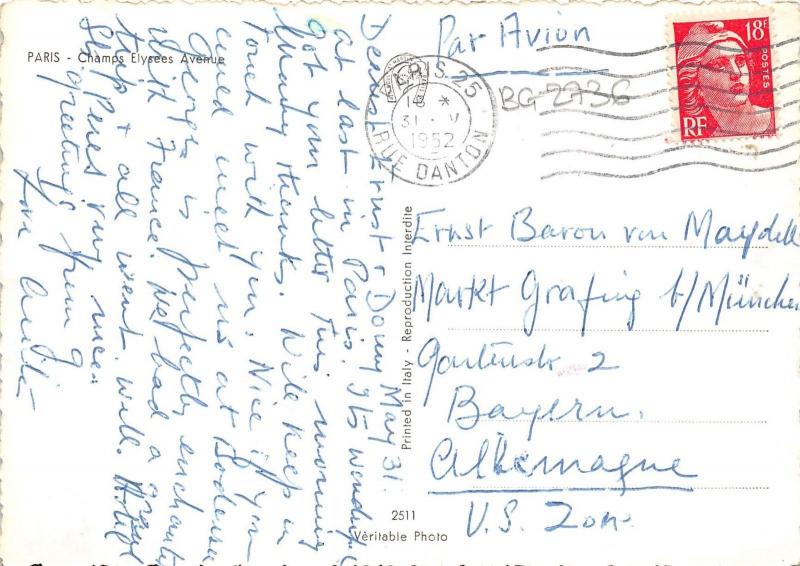 PARIS - Champs Elysées Avenue
Par Avion
BG-2736
PARIS. 25
31 - V
1952
RUE DANTON
18F
POSTES
RF
Dearest Ernst & Dorry May 31.
at last in Paris. It's wonderful
Got your letter this morning
Many thanks. Will keep in
touch with you. Nice if you
could meet us at Bodensee
Georges is perfectly enchanted
with France. We had a grand
trip & all went well. Hotel
Sts Peres very nice.
greetings from
Love
Ernst Baron von Maydell
Markt Grafing b/München
Gartenstr 2
Bayern.
Allemagne
U.S. Zone
Printed in Italy - Reproduction Interdite
2511
Vèritable Photo